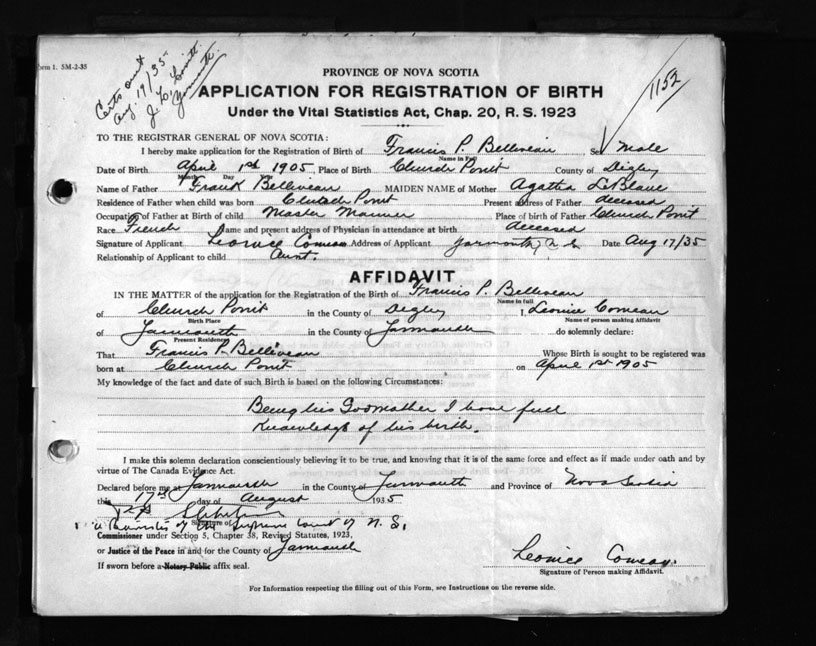 orm 1. 5M-2-35
Certs
Aug. 19/35
Yarmouth.
1152
PROVINCE OF NOVA SCOTIA
APPLICATION FOR REGISTRATION OF BIRTH
Under the Vital Statistics Act, Chap. 20, R. S. 1923
TO THE REGISTRAR GENERAL OF NOVA SCOTIA:
I hereby make application for the Registration of Birth of Francis P. Belliveau Sex Male
Name in Full
Date of Birth April 1st 1905, Place of Birth Church Point County of Digby
Month Day Year
Name of Father Frank Belliveau MAIDEN NAME of Mother Agatha LeBlanc
Residence of Father when child was born Church Point Present address of Father deceased
Occupation of Father at Birth of child Master Mariner Place of birth of Father Church Point
Race French Name and present address of Physician in attendance at birth deceased
Signature of Applicant Leonice Comeau Address of Applicant Yarmouth, N.S. Date Aug 17/35
Relationship of Applicant to child Aunt.
AFFIDAVIT
IN THE MATTER of the application for the Registration of the Birth of Francis P. Belliveau
Name in full
of Church Point in the County of Digby I, Leonice Comeau
Birth Place Name of person making Affidavit
of Yarmouth in the County of Yarmouth do solemnly declare:
Present Residence
That Francis P. Belliveau Whose Birth is sought to be registered was
born at Church Point on April 1st 1905
My knowledge of the fact and date of such Birth is based on the following Circumstances:
Being his Godmother I have full
Knowledge of his birth.
I make this solemn declaration conscientiously believing it to be true, and knowing that it is of the same force and effect as if made under oath and by
virtue of The Canada Evidence Act.
Declared before me at Yarmouth in the County of Yarmouth and Province of Nova Scotia
this 17th day of August 1935
Signature of
a Barrister of the Supreme Court of N. S.
Commissioner under Section 5, Chapter 38, Revised Statutes, 1923,
or Justice of the Peace in and for the County of Yarmouth
If sworn before a Notary Public affix seal.
Leonice Comeau.
Signature of Person making Affidavit.
For Information respecting the filling out of this Form, see Instructions on the reverse side.